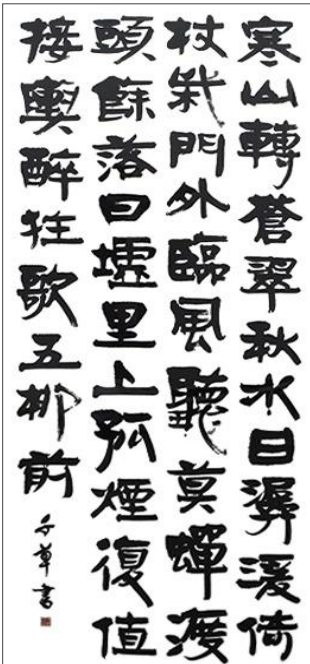 寒山轉蒼翠秋水日潺湲倚
杖柴門外臨風聽莫蟬渡
頭餘落日墟里上孤煙復值
接輿醉狂歌五柳前
草書